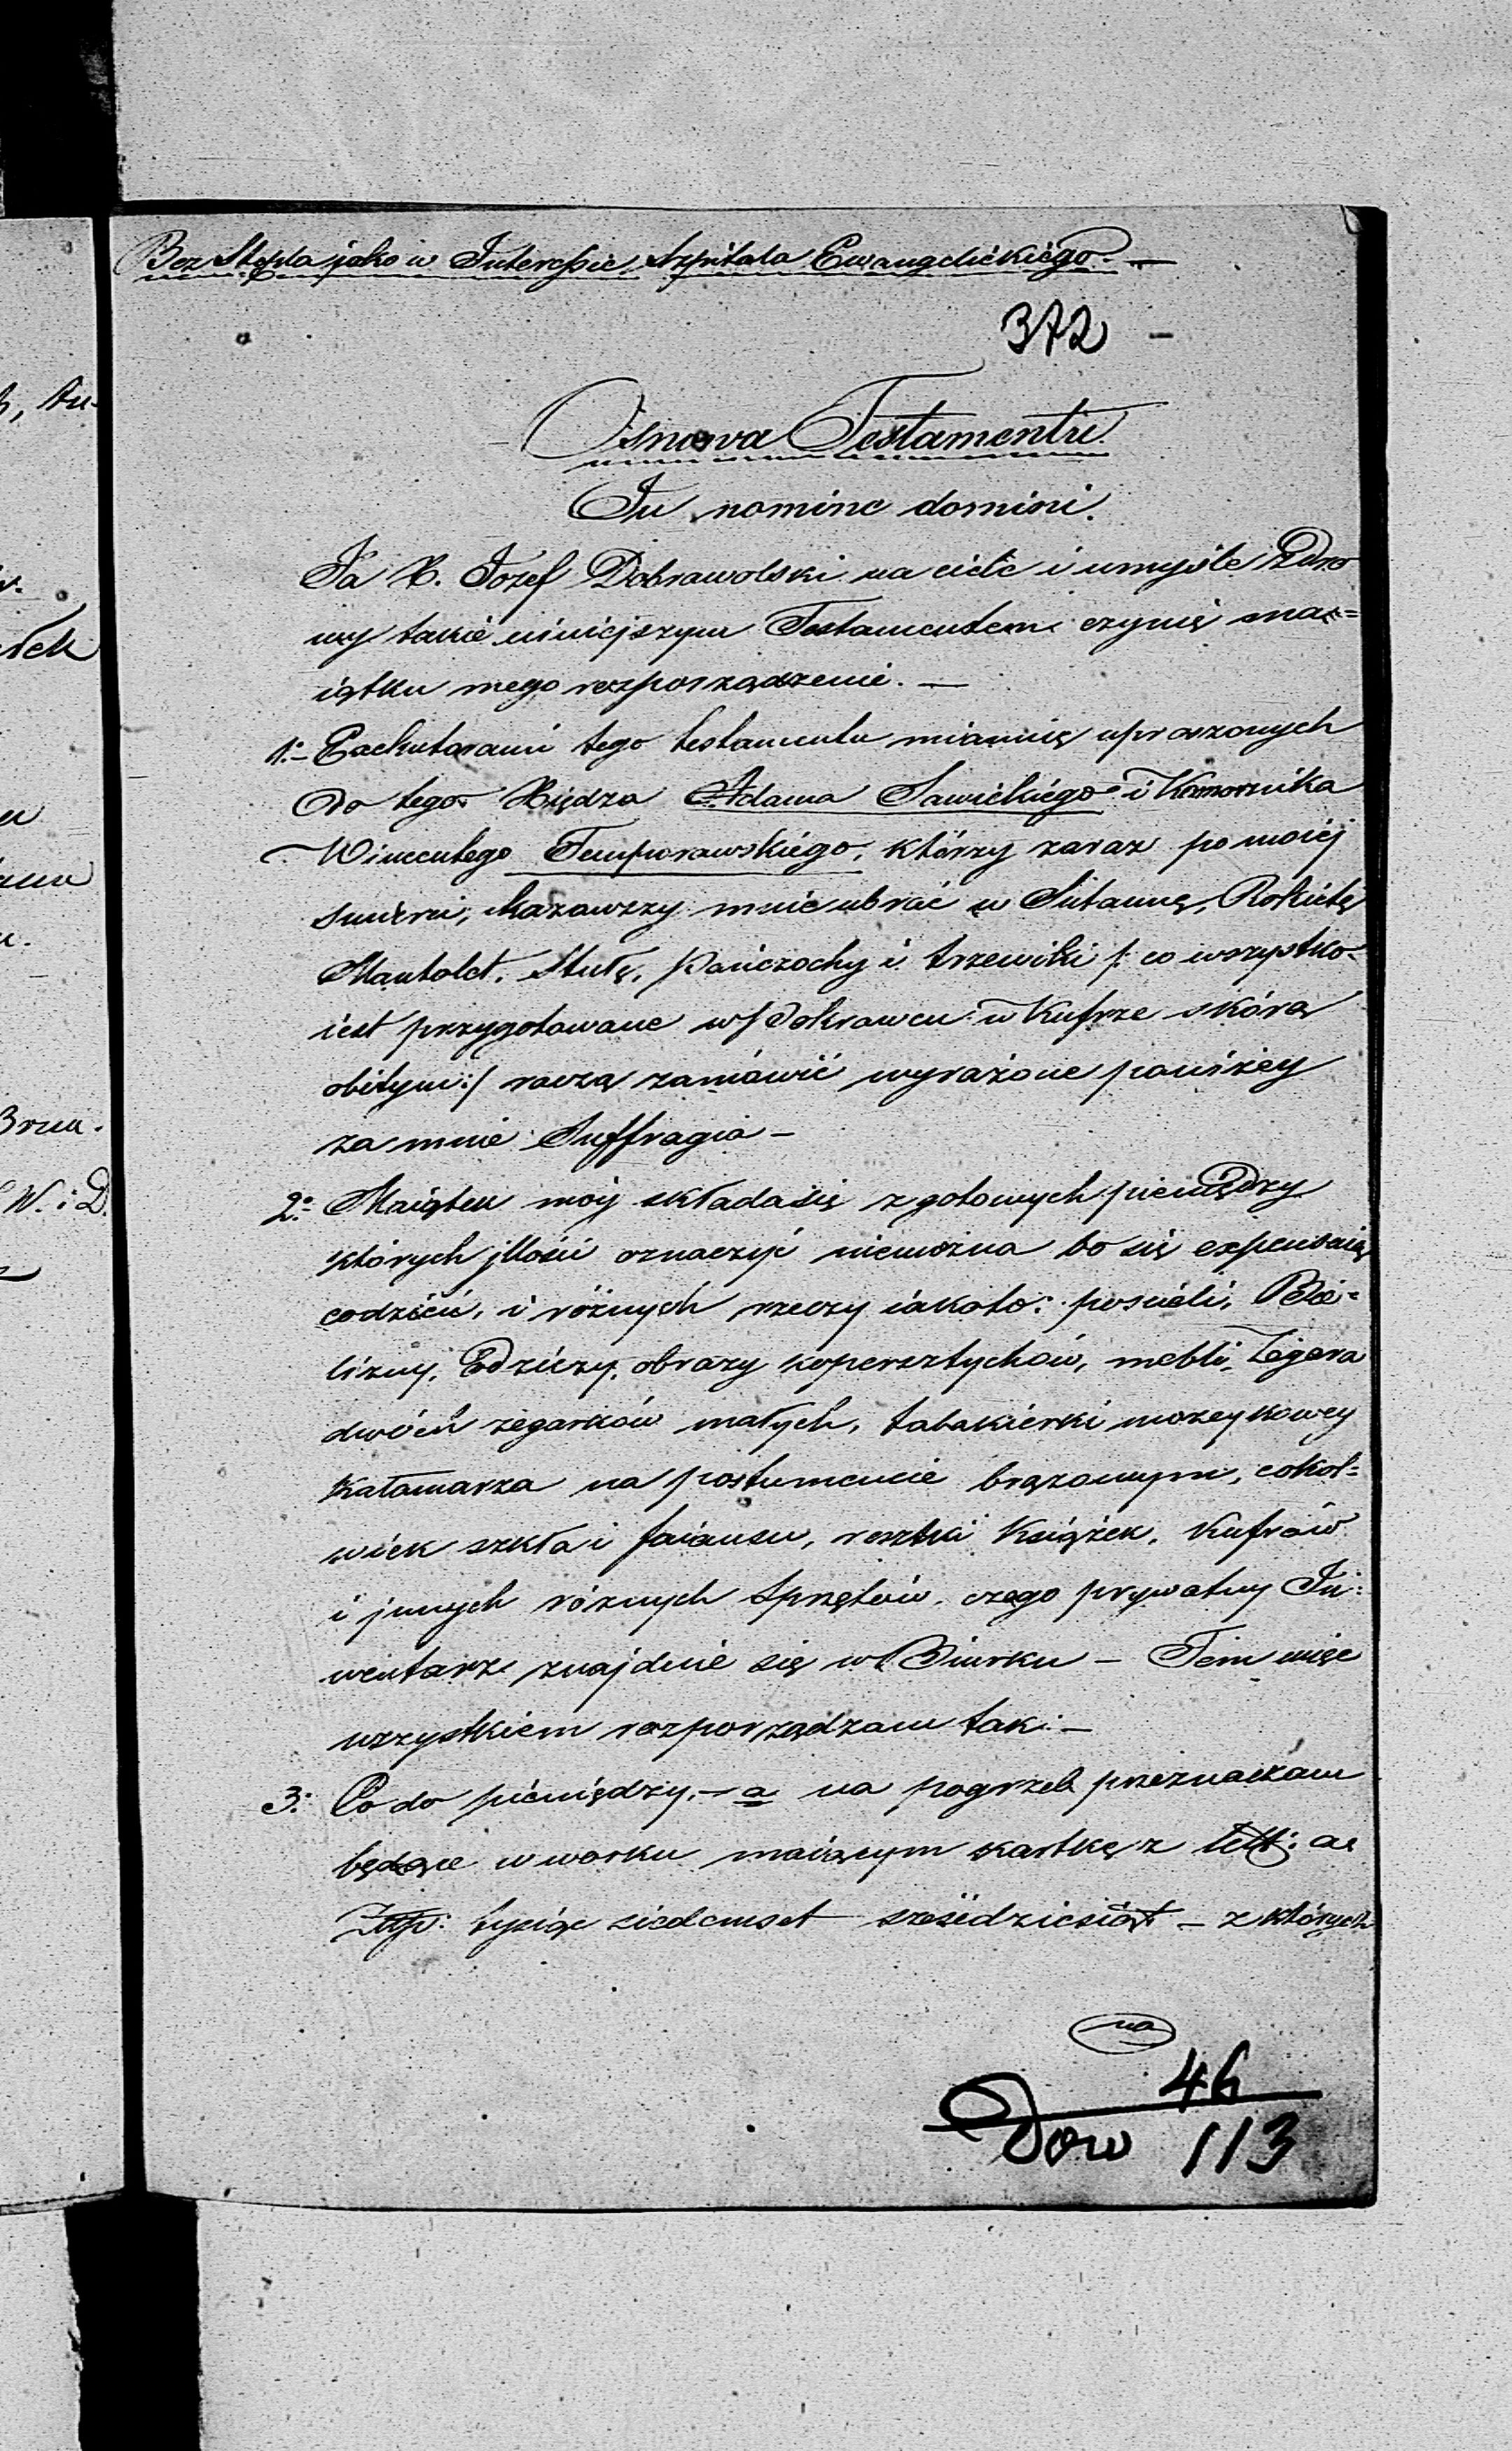 Bez Stępla jako w Interessie Szpitala Ewangelickiego. —
372 —
Osnowa Testamentu.
In nomine domini.
Ja X. Jozef Dobrawolski na ciele i umyśle Zdro
wy takie niniejszym Testamentem czynię ma=
iątku mego rozporządzenie. —
1.- Exekutorami tego testamentu mianuię uproszonych
do tego Xiędza Adama Sawickiego i Komornika
Wincentego Temporawskiego, którzy zaraz po moiéj
Smierci, kazawszy mnie ubrać w Sutannę, Rokietę
Mantolet, Stułę, Pończochy i trzewiki /: co wszystko
iest przygotowane w Kufrze skórą
obitym :/ raczą zamówić wyrażone poniżey
za mnie Suffragia —
2.- Maiątek moy składa się z gotowych pieniędzy
których jllości oznaczyć niemożna bo się expensuią
codzień, i różnych rzeczy iakoto: pościeli, Bie=
lizny, Odzieży, obrazy kopersztychów, mebli, Zegara
dwóch zegarków małych, tabakierki mozeykowey
Kałamarza na postumencie brązowym, cokol=
wiek szkła i faiansu, resztki Książek, Kufrów
i jnnych różnych Sprzętów, czego prywatny In=
wentarz znajdzie się w Biurku — Tem więc
wszystkiem rozporządzam tak: —
3: Co do pieniędzy, — a na pogrzeb przeznaczam
będące w worku maiącym kartkę z litt: a
Złtp: tysiąc siedemset sześćdziesiąt — z których
na
46
Dow 113
h, tu-
łek
Brun.
W. i D.